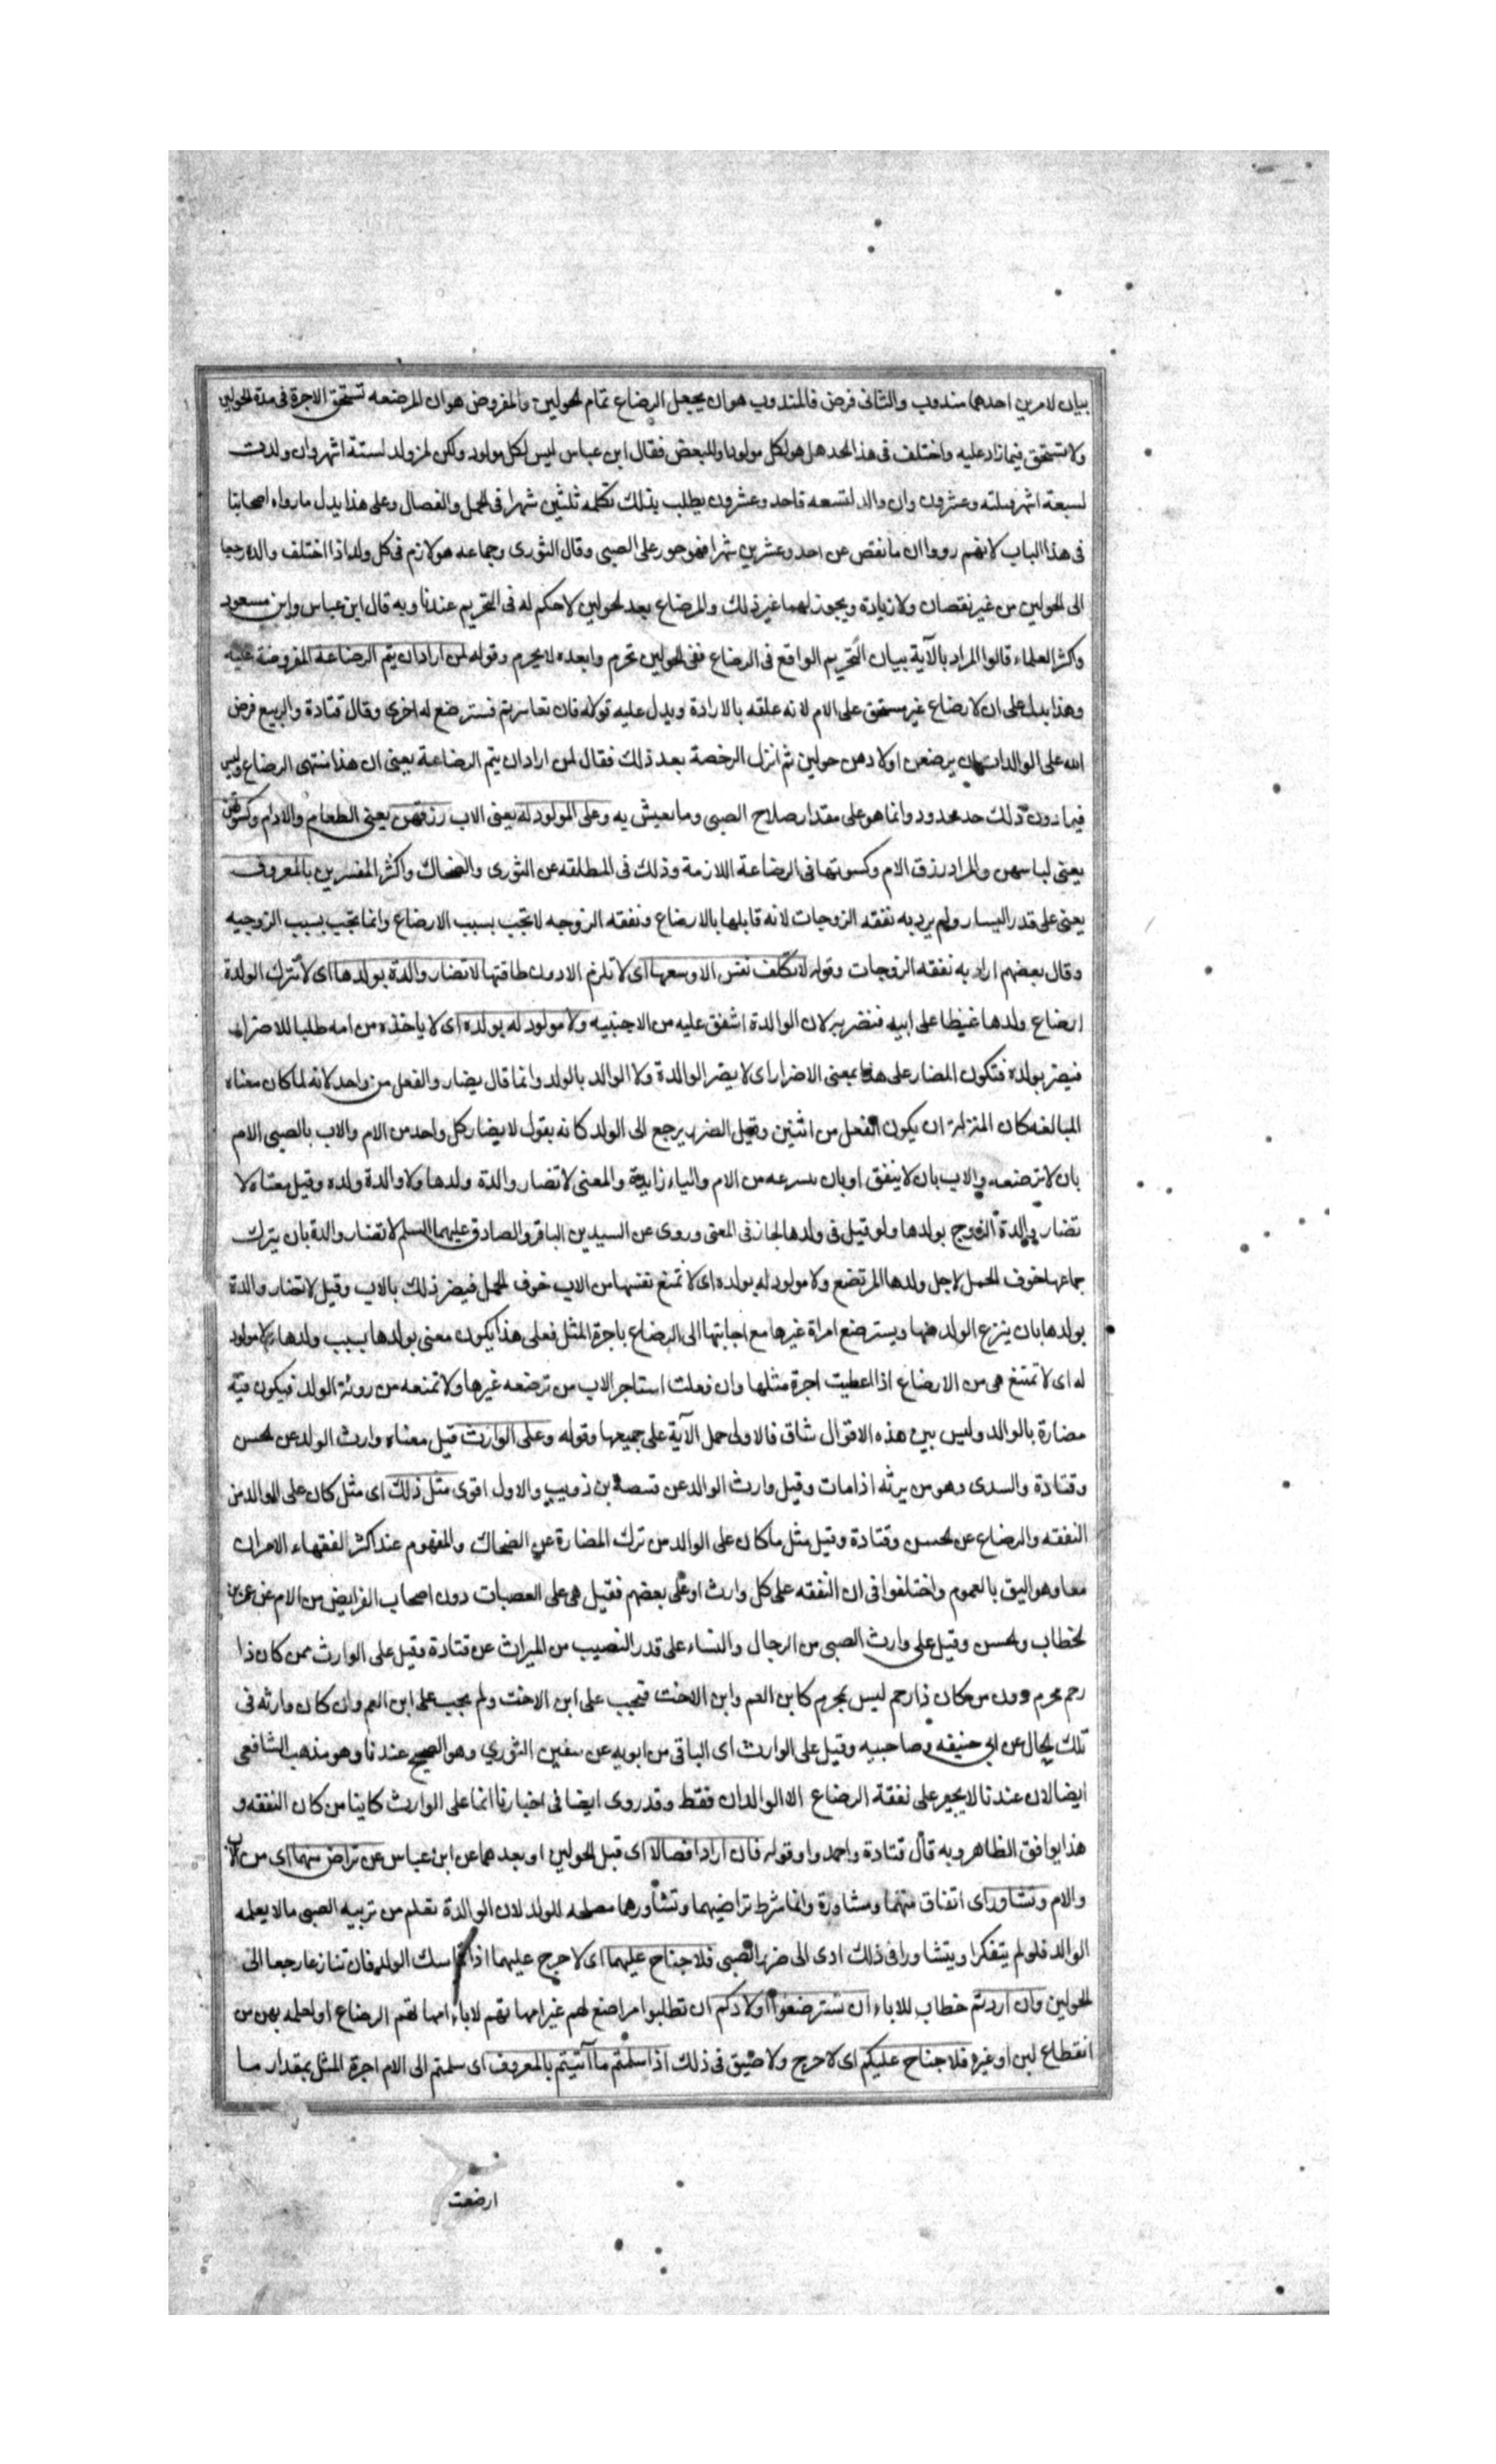 بيان لامرين احدهما مندوب والثانى فرض فالمندوب هو ان يجعل الرضاع تمام الحولين والمفروض هو ان المرضعه تستحق الاجرة فى مدة الحولين
ولا تستحق فيما زاد عليه واختلف فى هذا الحد هل هو لكل مولود او للبعض فقال ابن عباس ليس لكل مولود ولكن لمن ولد لستة اشهر وان ولدت
لسبعة اشهر فثلثه وعشرون وان ولد لتسعه فاحد وعشرون يطلب بذلك تكمله ثلثين شهرا فى الحمل والفصال وعلى هذا يدل ما رواه اصحابنا
فى هذا الباب لانهم رووا ان ما نقص عن احد وعشرين شهرا فهو جور على الصبى وقال الثورى وجماعه هو لازم فى كل ولد اذا اختلف والداه رجعا
الى الحولين من غير نقصان ولا زيادة ويجوز لهما غير ذلك والرضاع بعد الحولين لا حكم له فى التحريم عندنا وبه قال ابن عباس وابن مسعود
واكثر العلماء قالوا المراد بالآية بيان التحريم الواقع فى الرضاع ففى الحولين تحرم وما بعده لا يحرم وقوله لمن اراد ان يتم الرضاعة المفروضة عليه
وهذا يدل على ان لارضاع غير مستحق على الام لانه علقه بالارادة ويدل عليه قوله فان تعاسرتم فسترضع له اخرى وقال قتادة والربيع فرض
الله على الوالدات ان يرضعن اولادهن حولين ثم انزل الرخصة بعد ذلك فقال لمن اراد ان يتم الرضاعة يعنى ان هذا منتهى الرضاع وليس
فيما دون ذلك حد محدود وانما هو على مقدار صلاح الصبى وما يعيش به وعلى المولود له يعنى الاب رزقهن يعنى الطعام والادام وكسوتهن
يعنى لباسهن والمراد رزق الام وكسوتها فى الرضاعة اللازمة وذلك فى المطلقه عن الثورى والضحاك واكثر المفسرين بالمعروف
يعنى على قدر اليسار ولم يرد به نفقه الزوجات لانه قابلها بالارضاع ونفقه الزوجه لا تجب بسبب الارضاع وانما تجب بسبب الزوجيه
وقال بعضهم اراد به نفقه الزوجات وقوله لا تكلف نفس الا وسعها اى لا تلزم الا دون طاقتها لا تضار والدة بولدها اى لا تترك الولدة
ارضاع ولدها غيظا على ابيه فتضر به لان الوالدة اشفق عليه من الاجنبيه ولا مولود له بولده اى لا ياخذه من امه طلبا للاضرار
فيضر بولده فتكون المضار على هذا بمعنى الاضرار اى لا يضر الوالدة ولا الوالد بالولد وانما قال يضار والفعل من واحد لانه لما كان معناه
المبالغه كان المنزلة ان يكون الفعل من اثنين وقيل الضرر يرجع الى الولد كانه يقول لا يضار كل واحد من الام والاب بالصبى الام
بان لا ترضعه والاب بان لا ينفق او بان ينزعه من الام والياء زايدة والمعنى لا تضار والدة ولدها ولا والدة ولده وقيل معناه لا
تضار والدة الزوج بولدها ولو قيل فى ولدها لجاز فى المعنى وروى عن السيدين الباقر والصادق عليهما السلم لا تضار والدة بان يترك
جماعها خوف الحمل لاجل ولدها المرتضع ولا مولود له بولده اى لا تمنع نفسها من الاب خوف الحمل فيضر ذلك بالاب وقيل لا تضار والدة
بولدها بان ينزع الولد منها ويسترضع امراة غيرها مع اجابتها الى الرضاع باجرة المثل فعلى هذا يكون معنى بولدها بسبب ولدها ولا مولود
له اى لا تمتنع هى من الارضاع اذا اعطيت اجرة مثلها وان فعلت استاجر الاب من ترضعه غيرها ولا تمنعه من روئة الولد فيكون فيه
مضارة بالوالد وليس بين هذه الاقوال شاق فالاولى حمل الآية على جميعها وقوله وعلى الوارث قيل معناه وارث الولد عن الحسن
وقتادة والسدى وهو من يرثه اذا مات وقيل وارث الوالد عن قبيصة بن ذويب والاول اقوى مثل ذلك اى مثل كان على الوالد من
النفقه والرضاع عن الحسن وقتادة وقيل مثل ما كان على الوالد من ترك المضارة عن الضحاك والمفهوم عند اكثر الفقهاء الامران
معا وهو اليق بالعموم واختلفوا فى ان النفقه على كل وارث او على بعضهم فقيل هى على العصبات دون اصحاب الفرايض من الام عن عمر بن
الخطاب والحسن وقيل على وارث الصبى من الرجال والنساء على قدر النصيب من الميراث عن قتادة وقيل على الوارث ممن كان ذا
رحم محرم دون من كان ذا رحم ليس بمحرم كابن العم وابن الاخت فتجب على ابن الاخت ولم يجب على ابن العم وان كان وارثه فى
تلك الحال عن ابى حنيفه وصاحبيه وقيل على الوارث اى الباقى من ابويه عن سفين الثوري وهو الصحيح عندنا وهو مذهب الشافعى
ايضا لان عندنا لا يجبر على نفقة الرضاع الا الوالدان فقط وقد روى ايضا فى اخبارنا انما على الوارث كاينا من كان النفقه و
هذا يوافق الظاهر وبه قال قتادة واحمد وا وقوله فان ارادا فصالا اى قبل الحولين او بعدهما عن ابن عباس عن تراض منهما اى من الاب
والام وتشاور اى اتفاق منهما ومشاورة وانما شرط تراضيهما وتشاورهما مصلحه للولد لان الوالدة تعلم من تربيه الصبى ما لا يعلمه
الوالد فلو لم يتفكرا ويتشاورا فى ذلك ادى الى ضرر الصبى فلا جناح عليهما اى لا حرج عليهما اذا تماسك الولد فان تنازعا رجعا الى
الحولين وان اردتم خطاب للاباء ان تسترضعوا اولادكم ان تطلبوا مراضع لهم غير امهاتهم لاباء امهاتهم الرضاع او لعله بهن من
انقطاع لبن او غيره فلا جناح عليكم اى لا حرج ولا ضيق فى ذلك اذا سلمتم ما آتيتم بالمعروف اى سلمتم الى الام اجرة المثل بمقدار ما
ارضعت